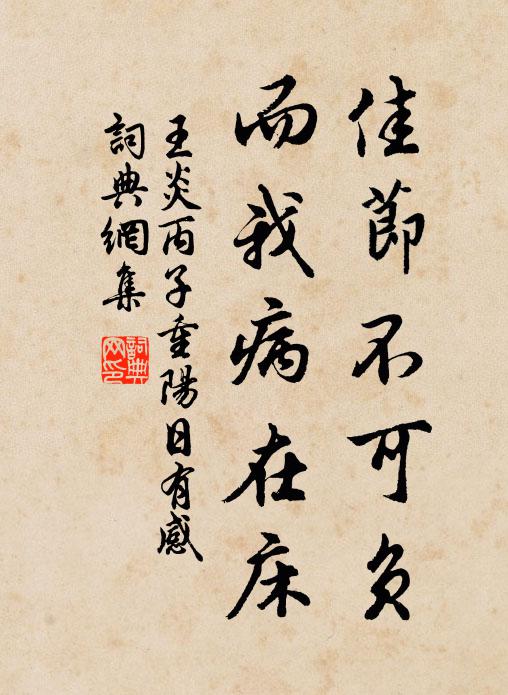 佳節不可負
而我病在床
王炎丙子重陽日有感
詞典網集
詞典
网印